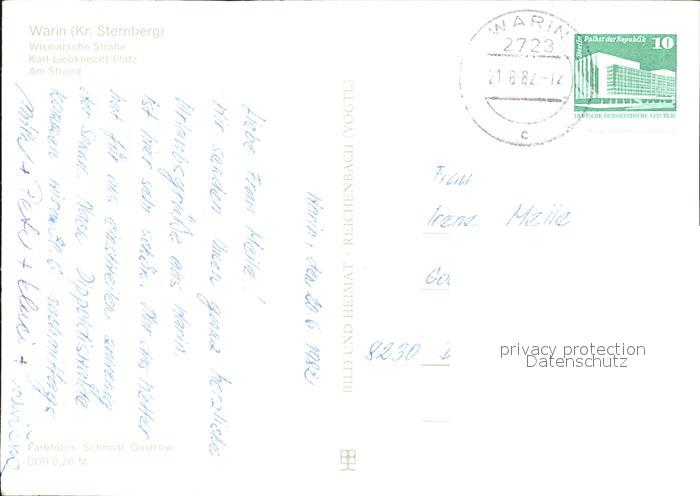 Warin (Kr. Sternberg)
Wismarsche Straße
Karl-Liebknecht-Platz
Am Strand
WARIN
2723
21.6.82-12
c
Berlin Palast der Republik
10
DEUTSCHE DEMOKRATISCHE REPUBLIK
Warin, den 20.6.1982
Liebe Frau Meile!
Wir senden Ihnen ganz herzliche
Urlaubsgrüße aus Warin.
Es ist hier sehr schön. Nur das Wetter
hat für uns einstweilen
der Sonne. Nach Dippoldiswalde
kommen wir am 6. nachmittags.
+ Peter + +
BILD UND HEIMAT · REICHENBACH (VOGTL)
Frau
Irene Meile
8230
privacy protection
Datenschutz
Farbfotos: Schmidt, Güstrow
DDR 0,20 M